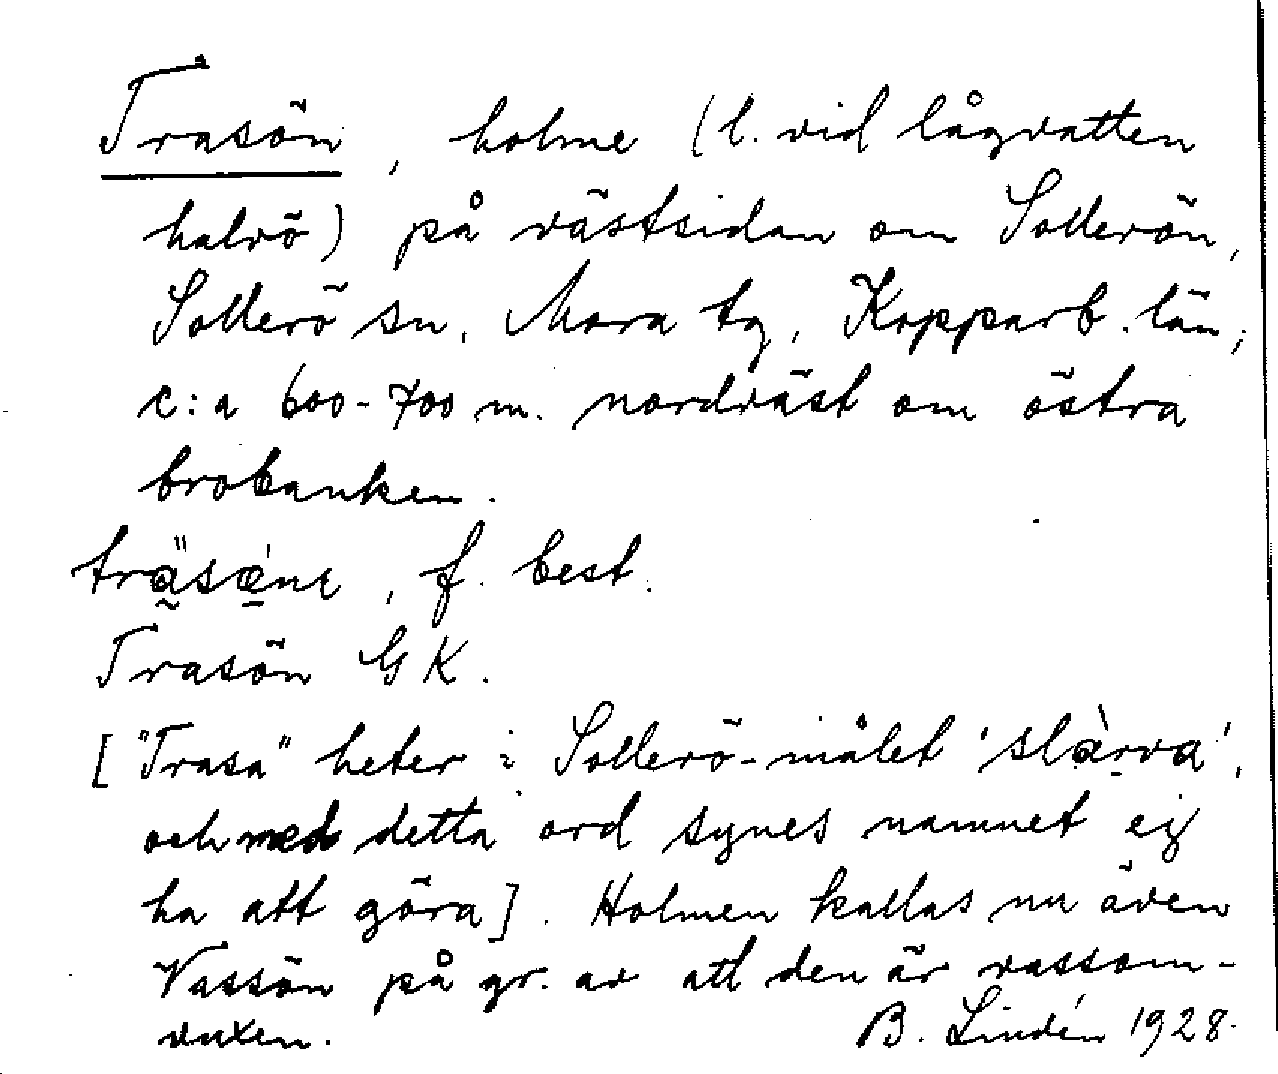 Trasön, holme (l. vid lågvatten
halvö) på västsidan om Sollerön,
Sollerö sn, Mora tg, Kopparb. län;
c:a 600-700 m. nordväst om östra
brobanken.
f. best.
Trasön GK.
["Trasa" heter i Sollerö-målet 'slàrva',
och med detta ord synes namnet ej
ha att göra]. Holmen kallas nu även
Vassön på gr. av att den är vassom-
vuxen. B. Lindén 1928.